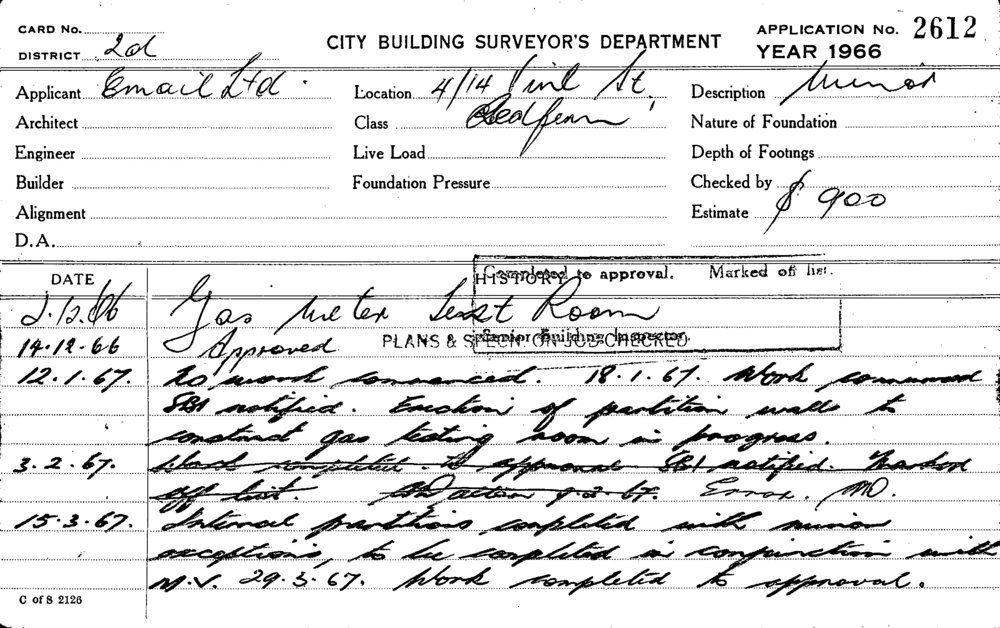 CARD No.
DISTRICT 2d
CITY BUILDING SURVEYOR'S DEPARTMENT
APPLICATION No. 2612
YEAR 1966
Applicant Email Ltd
Location 4/14 St,
Description Minor
Architect
Class Redfern
Nature of Foundation
Engineer
Live Load
Depth of Footings
Builder
Foundation Pressure
Checked by
Alignment
Estimate $ 900
D.A.
DATE
HISTORY
Completed to approval. Marked off list.
2.12.66 Gas Meter Test Room
14.12.66 Approved
PLANS & SPECN ON JOB CHECKED
Senior Building Inspector
12.1.67. No work commenced. 18.1.67. Work commenced
SBI notified. Erection of partition walls to
construct gas testing room in progress.
3.2.67. Work completed to approval SBI notified. Marked
off list. 9.2.67. Error. MO.
15.3.67. Internal partitions completed with minor
exceptions, to be completed in conjunction with
M.V. 29.3.67. Work completed to approval.
C of S 2126